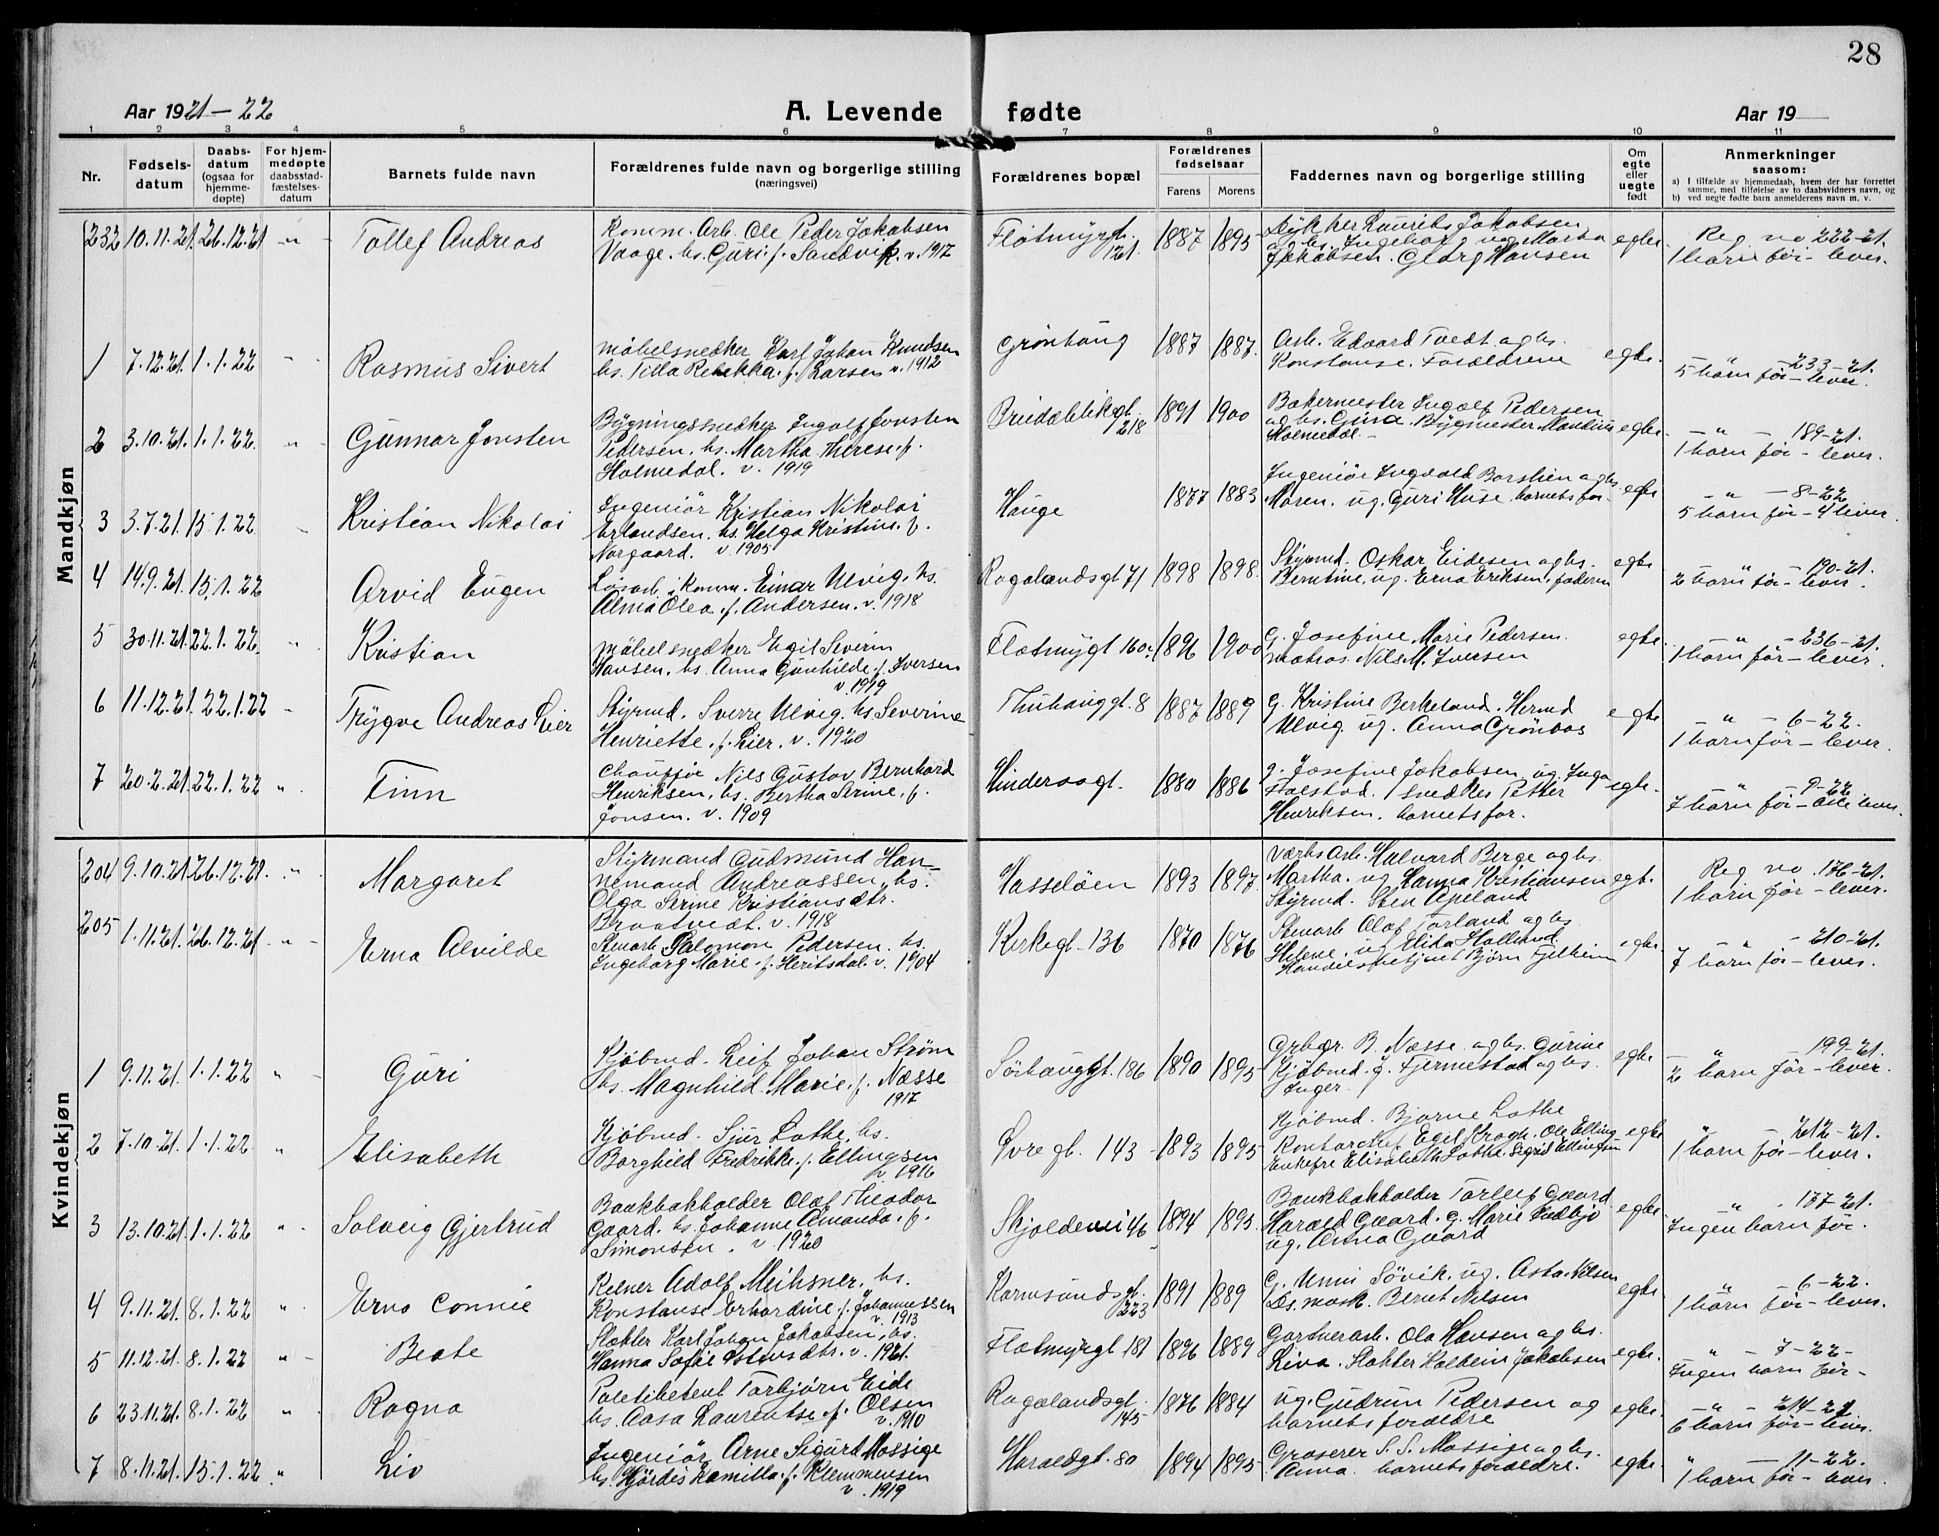 28
Aar 1921-22 A. Levende fødte Aar 19
1 2 3 4 5 6 7 8 9 10 11
Nr. Fødsels-datum Daabs-datum (ogsaa for hjemme-døpte) For hjem-medøpte daabsstad-fæstelses-datum Barnets fulde navn Forældrenes fulde navn og borgerlige stilling (næringsvei) Forældrenes bopæl Forældrenes fødselsaar Farens Morens Faddernes navn og borgerlige stilling Om egte eller uegte født Anmerkninger saasom:
a) I tilfælde av hjemmedaab, hvem der har forrettet samme, med tilføielse av to daabsvidners navn, og
b) ved uegte fødte barn anmelderens navn m. v.
Mandkjøn
232 10.11.21. 26.12.21 -"- Tollef Andreas Komm. Arb. Ole Peder Jakobsen Flotmyrgt. 1887 1895 Laurits Jakobsen egte. Reg. no 222-21.
Vaage. hs. Guri f. Sandvik. v. 1917 121. og hs. Ingeborg ug. Marta 1 barn før - lever.
Jakobsen. Georg Hansen
1 7.12.21. 1.1.22 " Rasmus Sivert Møbelsnedker Karl Johan Knudsen Grønhaug 1887 1887. Arb. Edvard Tvedt og hs. egte. -"- 233-21.
hs. Tilla Rebekka. f. Larsen v. 1912 Konstanse. Forældrene 5 barn før - lever.
2 3.10.21. 1.1.22. " Gunnar Jonsten Bygningssnedker Ingolf Jonsten Breidablikgt. 1891 1900 Bakermester Ingolf Pedersen egte. -"- 189-21.
Pedersen. hs. Martha Therese. f. 218 og hs. Gina. Bygmester 1 barn før - lever.
Holmedal. v. 1919 Holmedal. -
3 3.7.21. 15.1.22 " Kristian Nikolai Ingeniør Kristian Nikolai Hauge 1877 1883 Ingeniør Ingvald og hs. egte -"- 8-22
Erlandsen. hs. Helga Kristine. f. Maren. ug. Guri Huse barnets for. 5 barn før - 4 lever.
Norgaard. v. 1905
4 14.9.21. 15.1.22 Arvid Eugen Løsarb. i komm. Einar Ulvig. hs. Rogalandsgt 71 1898 1898. Styrmd. Oskar Eidesen og hs. egte -"- 190-21.
Alma Olea f. Andersen. v. 1918 Berntine, ug. Erna Eriksen, faderen 2 barn før - lever.
5 30.11.21. 22.1.22. " Kristian Møbelsnedker Egil Severin Flotmyrgt 160 1896 1900 G. Josefine Marie Pedersen. egte -"- 236-21.
Hansen. hs. Anna Gunhilde f. Iversen Matros. Nils M. Iversen 1 barn før - lever.
v. 1919
6 11.12.21. 22.1.22 - Trygve Andreas Lier Styrmd. Sverre Ulvig. hs Severine Thuhauggt. 8 1887 1889 G. Kristine Berkeland. Hermd egte -"- 6-22.
Henriette. f. Lier. v. 1920 Ulvig. ug. Anna Grønbas 1 barn før - lever.
7 20.2.21. 22.1.22 ". Finn Chauffør Nils Gustav Bernhard Hinderaagt. 1880 1886 g. Josefine Jakobsen. ug. Inga egte. -"- 9-22.
Henriksen. hs. Bertha Serine. f. Falstad. Snedker Petter 7 barn før - alle lever.
Jonsen. v. 1909 Henriksen. barnets for.
Kvindekjøn
204 9.10.21. 26.12.21. ". Margaret Styrmand Gudmund Han- Hasseløen 1893 1897. Værks Arb. Halvard Berge og hs. egt. Reg no 176-21.
nemand Andreassen. hs. Martha. ug Hanna Kristiansen 1 barn før - lever.
Olga Serine Kristiansdtr. Styrmd. Sten Apeland
Braatvedt. v. 1918
205 1.11.21. 26.12.21 -"- Erna Alvilde Stenarb. Salomon Pedersen. hs. Kirkegt. 136 1870 1876 Stenarb Olaf Torland og hs. egte. -"- 210-21.
Ingeborg Marie f. Heritsdal. v. 1904 Helene. ug. Elida Holland. 7 barn før - lever.
Handelsbetjent Bjørn Fjelheim
1 9.11.21. 1.1.22 " Guri Kjøbmd. Leif Johan Strøm Sørhauggt. 186 1890 1895 B. Næsse og hs. Gurine egte -"- 199-21.
hs. Magnhild Marie. f. Næsse Kjøbmd. J. Fjermestad og hs. 2 barn før - lever.
1917 Inger.
2 7.10.21. 1.1.22. " Elisabeth Kjøbmd. Sjur Lothe. hs. Øvregt. 143 1893 1895 Kjøbmd. Bjarne Lothe egte " - 212-21.
Borghild Fredrikke. f. Ellingsen Egil Krogh. Ole Elling 1 barn før - lever.
v. 1916 Enkefru Elisabeth Lothe. Sigrid Ellingsen
3 13.10.21. 1.1.22 ". Solveig Gjertrud Bankbokholder Olaf Theodor Skjoldevei 46 1894 1895. Bankbokholder Torleif Gaard egte. " 177-21.
Gaard. hs. Johanne Amanda. f. Harald Gaard. g. Marie Ingen barn før.
Simonsen. v. 1920 ug. Anna Gaard
4 9.11.21. 8.1.22 ". Erna Connie Kelner Adolf Meihsner. hs. Karmsundsgt. 1891 1889 G. Unni Søvik. ug. Asta Nilsen egte " 6-22.
Konstanse Erhardine f. Johannessen 223 Ds. mask. Bernt Nilsen 1 barn før - lever.
v. 1913
5 11.12.21. 8.1.22 " - Beate Slakter Karl Johan Jakobsen. hs. Flotmyrgt 181 1896 1889 Gartnerarb. Ola Hansen og hs. egte. " - 7-22-
Hanna Sofie v. 1921. Liva. Slakter Jakobsen Ingen barn før-
6 23.11.21. 8.1.22 " Ragna Politibetjent Torbjørn Eide Rogalandsgt. 1876 1884 ug. Gudrun Pedersen og egte. -"- 214-21.
hs. Aasa Laurentse f. Olsen 145- barnets forældre 6 barn før - lever.
v. 1910
7 8.11.21. 15.1.22 " Liv Ingeniør Arne Sigurd Mossige Haraldgt. 80 1894 1895- Grosserer S. S. Mossige og hs. egte. " - 11-22.
hs. Hjørdis Kamilla f. Klemmensen Anna. barnets forældre. 1 barn før - lever.
v. 1919